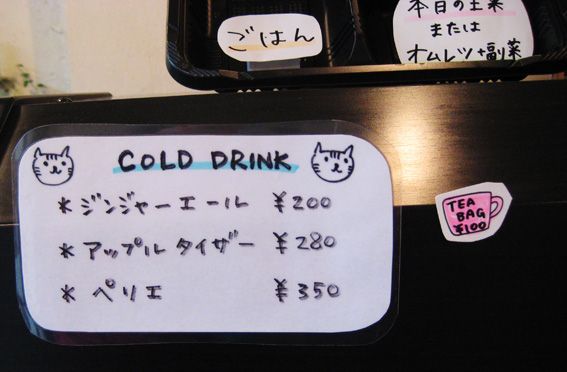 ごはん
本日の主菜
または
オムレツ+副菜
COLD DRINK
*ジンジャーエール ¥200
*アップルタイザー ¥280
*ペリエ ¥350
TEA
BAG
¥100